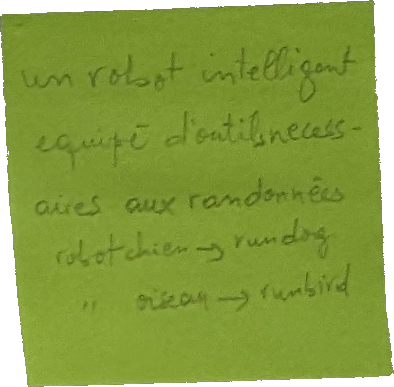 un robot intelligent
equipé d'outils necess-
aires aux randonnées
robot chien → rundog
" oiseau → runbird